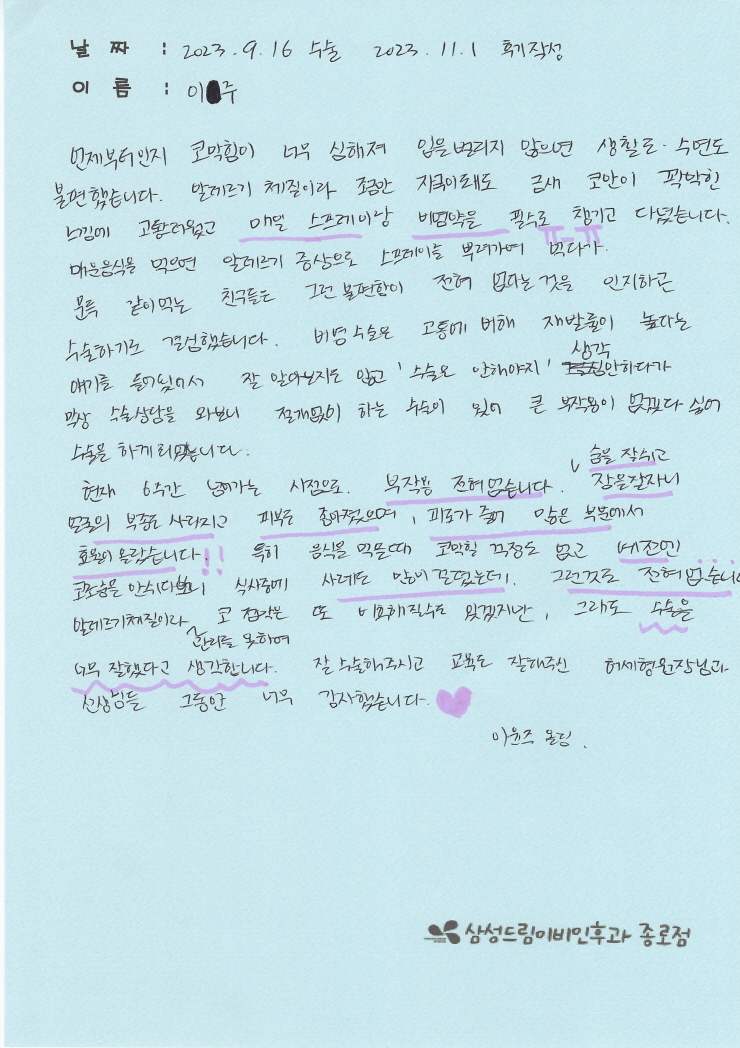 날 짜 : 2023.9.16 수술 2023.11.1 후기작성
이 름 : 이 주
언제부터인지 코막힘이 너무 심해져 입을 벌리지 않으면 생활도·수면도
불편했습니다. 알레르기 체질이라 조금만 자극이래도 금새 코안이 꽉막힌
느낌에 고통러웠고 매일 스프레이랑 비염약을 필수로 챙기고 다녔습니다.
매운음식을 먹으면 알레르기 증상으로 스프레이를 뿌려가며 먹다가 ㅠ_ㅠ
문득 같이먹는 친구들은 그런 불편함이 전혀 없다는것을 인지하곤
수술하기로 결심했습니다. 비염수술은 고통에 비해 재발률이 높다는
얘기를 들어왔어서 잘 알아보지도 않고 '수술은 안해야지' 생각만하다가
막상 수술상담을 와보니 절개없이 하는 수술이 있어 큰 부작용이 없겠다 싶어
수술을 하게되었습니다.
현재 6주간 넘어가는 시점으로 부작용 전혀없습니다. 숨을 잘쉬고 잠을잘자니
얼굴의 부종도 사라지고 피부도 좋아졌으며, 피로가 줄어 많은 부분에서
효율이 올랐습니다!! 특히 음식을 먹을때 코막힐 걱정도 없고 예전엔
코로숨을 안쉬다보니 식사중에 사레도 많이 걸렸는데. 그런것도 전혀없습니다
알레르기체질이라 관리를 못하여 코 점막은 또 비후해질수도 있겠지만, 그래도 수술을
너무 잘했다고 생각합니다. 잘 수술해주시고 교육도 잘해주신 허세형원장님과
선생님들 그동안 너무 감사했습니다.
이윤주 올림.
삼성드림이비인후과 종로점